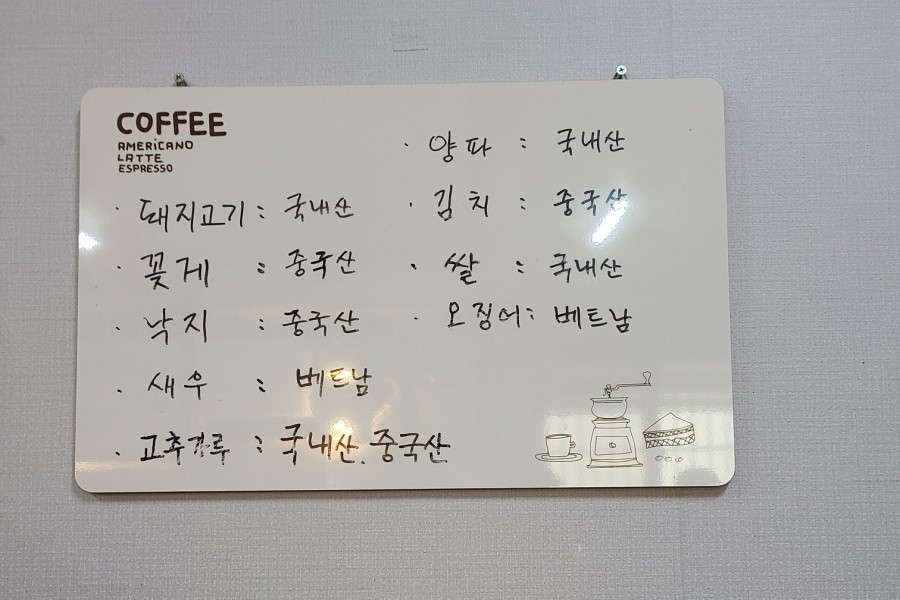 COFFEE
AMERICANO
LATTE
ESPRESSO
· 돼지고기 : 국내산
· 꽃게 : 중국산
· 낙지 : 중국산
· 새우 : 베트남
· 고추가루 : 국내산. 중국산
· 양파 : 국내산
· 김치 : 중국산
· 쌀 : 국내산
· 오징어 : 베트남